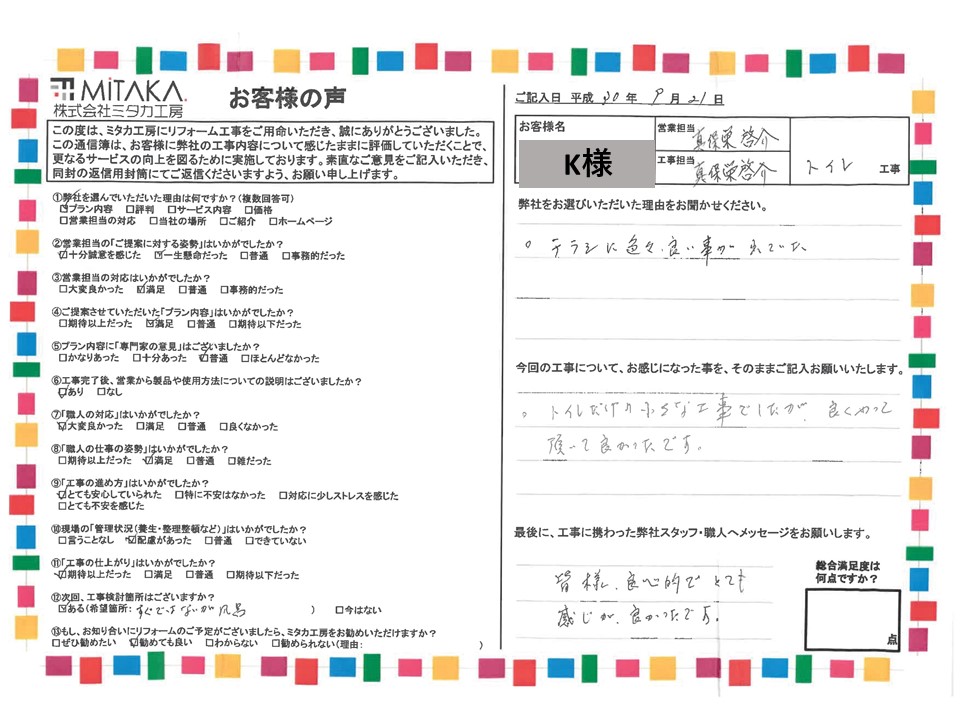 MiTAKA.
株式会社ミタカ工房
お客様の声
この度は、ミタカ工房にリフォーム工事をご用命いただき、誠にありがとうございました。
この通信簿は、お客様に弊社の工事内容について感じたままに評価していただくことで、
更なるサービスの向上を図るために実施しております。素直なご意見をご記入いただき、
同封の返信用封筒にてご返信くださいますよう、お願い申し上げます。
①弊社を選んでいただいた理由は何ですか？（複数回答可）
☑プラン内容 □評判 □サービス内容 □価格
□営業担当の対応 □当社の場所 □ご紹介 □ホームページ
②営業担当の「ご提案に対する姿勢」はいかがでしたか？
☑十分誠意を感じた ☑一生懸命だった □普通 □事務的だった
③営業担当の対応はいかがでしたか？
□大変良かった ☑満足 □普通 □事務的だった
④ご提案させていただいた「プラン内容」はいかがでしたか？
□期待以上だった ☑満足 □普通 □期待以下だった
⑤プラン内容に「専門家の意見」はございましたか？
□かなりあった □十分あった ☑普通 □ほとんどなかった
⑥工事完了後、営業から製品や使用方法についての説明はございましたか？
☑あり □なし
⑦「職人の対応」はいかがでしたか？
☑大変良かった □満足 □普通 □良くなかった
⑧「職人の仕事の姿勢」はいかがでしたか？
□期待以上だった ☑満足 □普通 □雑だった
⑨「工事の進め方」はいかがでしたか？
☑とても安心していられた □特に不安はなかった □対応に少しストレスを感じた
□とても不安を感じた
⑩現場の「管理状況（養生・整理整頓など）」はいかがでしたか？
□言うことなし ☑配慮があった □普通 □できていない
⑪「工事の仕上がり」はいかがでしたか？
☑期待以上だった □満足 □普通 □期待以下だった
⑫次回、工事検討箇所はございますか？
☑ある（希望箇所：すぐではないが風呂 ） □今はない
⑬もし、お知り合いにリフォームのご予定がございましたら、ミタカ工房をお勧めいただけますか？
□ぜひ勧めたい ☑勧めても良い □わからない □勧められない（理由： ）
ご記入日 平成 30 年 9 月 21 日
お客様名
K様
営業担当 真保栄啓介
工事担当 真保栄啓介
トイレ 工事
弊社をお選びいただいた理由をお聞かせください。
○ チラシに色々良い事が出ていた
今回の工事について、お感じになった事を、そのままご記入お願いいたします。
○ トイレだけの小さな工事でしたが、良くやって
頂いて良かったです。
最後に、工事に携わった弊社スタッフ・職人へメッセージをお願いします。
皆様、良心的でとても
感じが、良かったです。
総合満足度は
何点ですか？
点